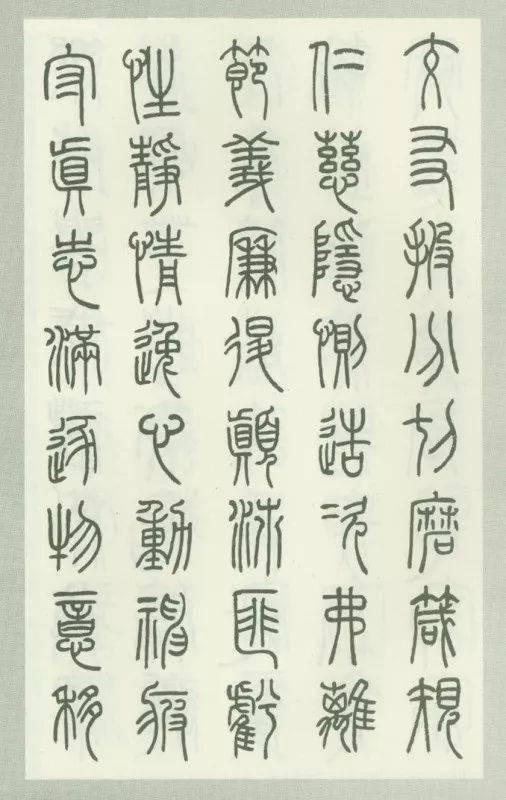 交友投分切磨箴規
仁慈隱惻造次弗離
節義廉退顛沛匪虧
性靜情逸心動神疲
守眞志滿逐物意移